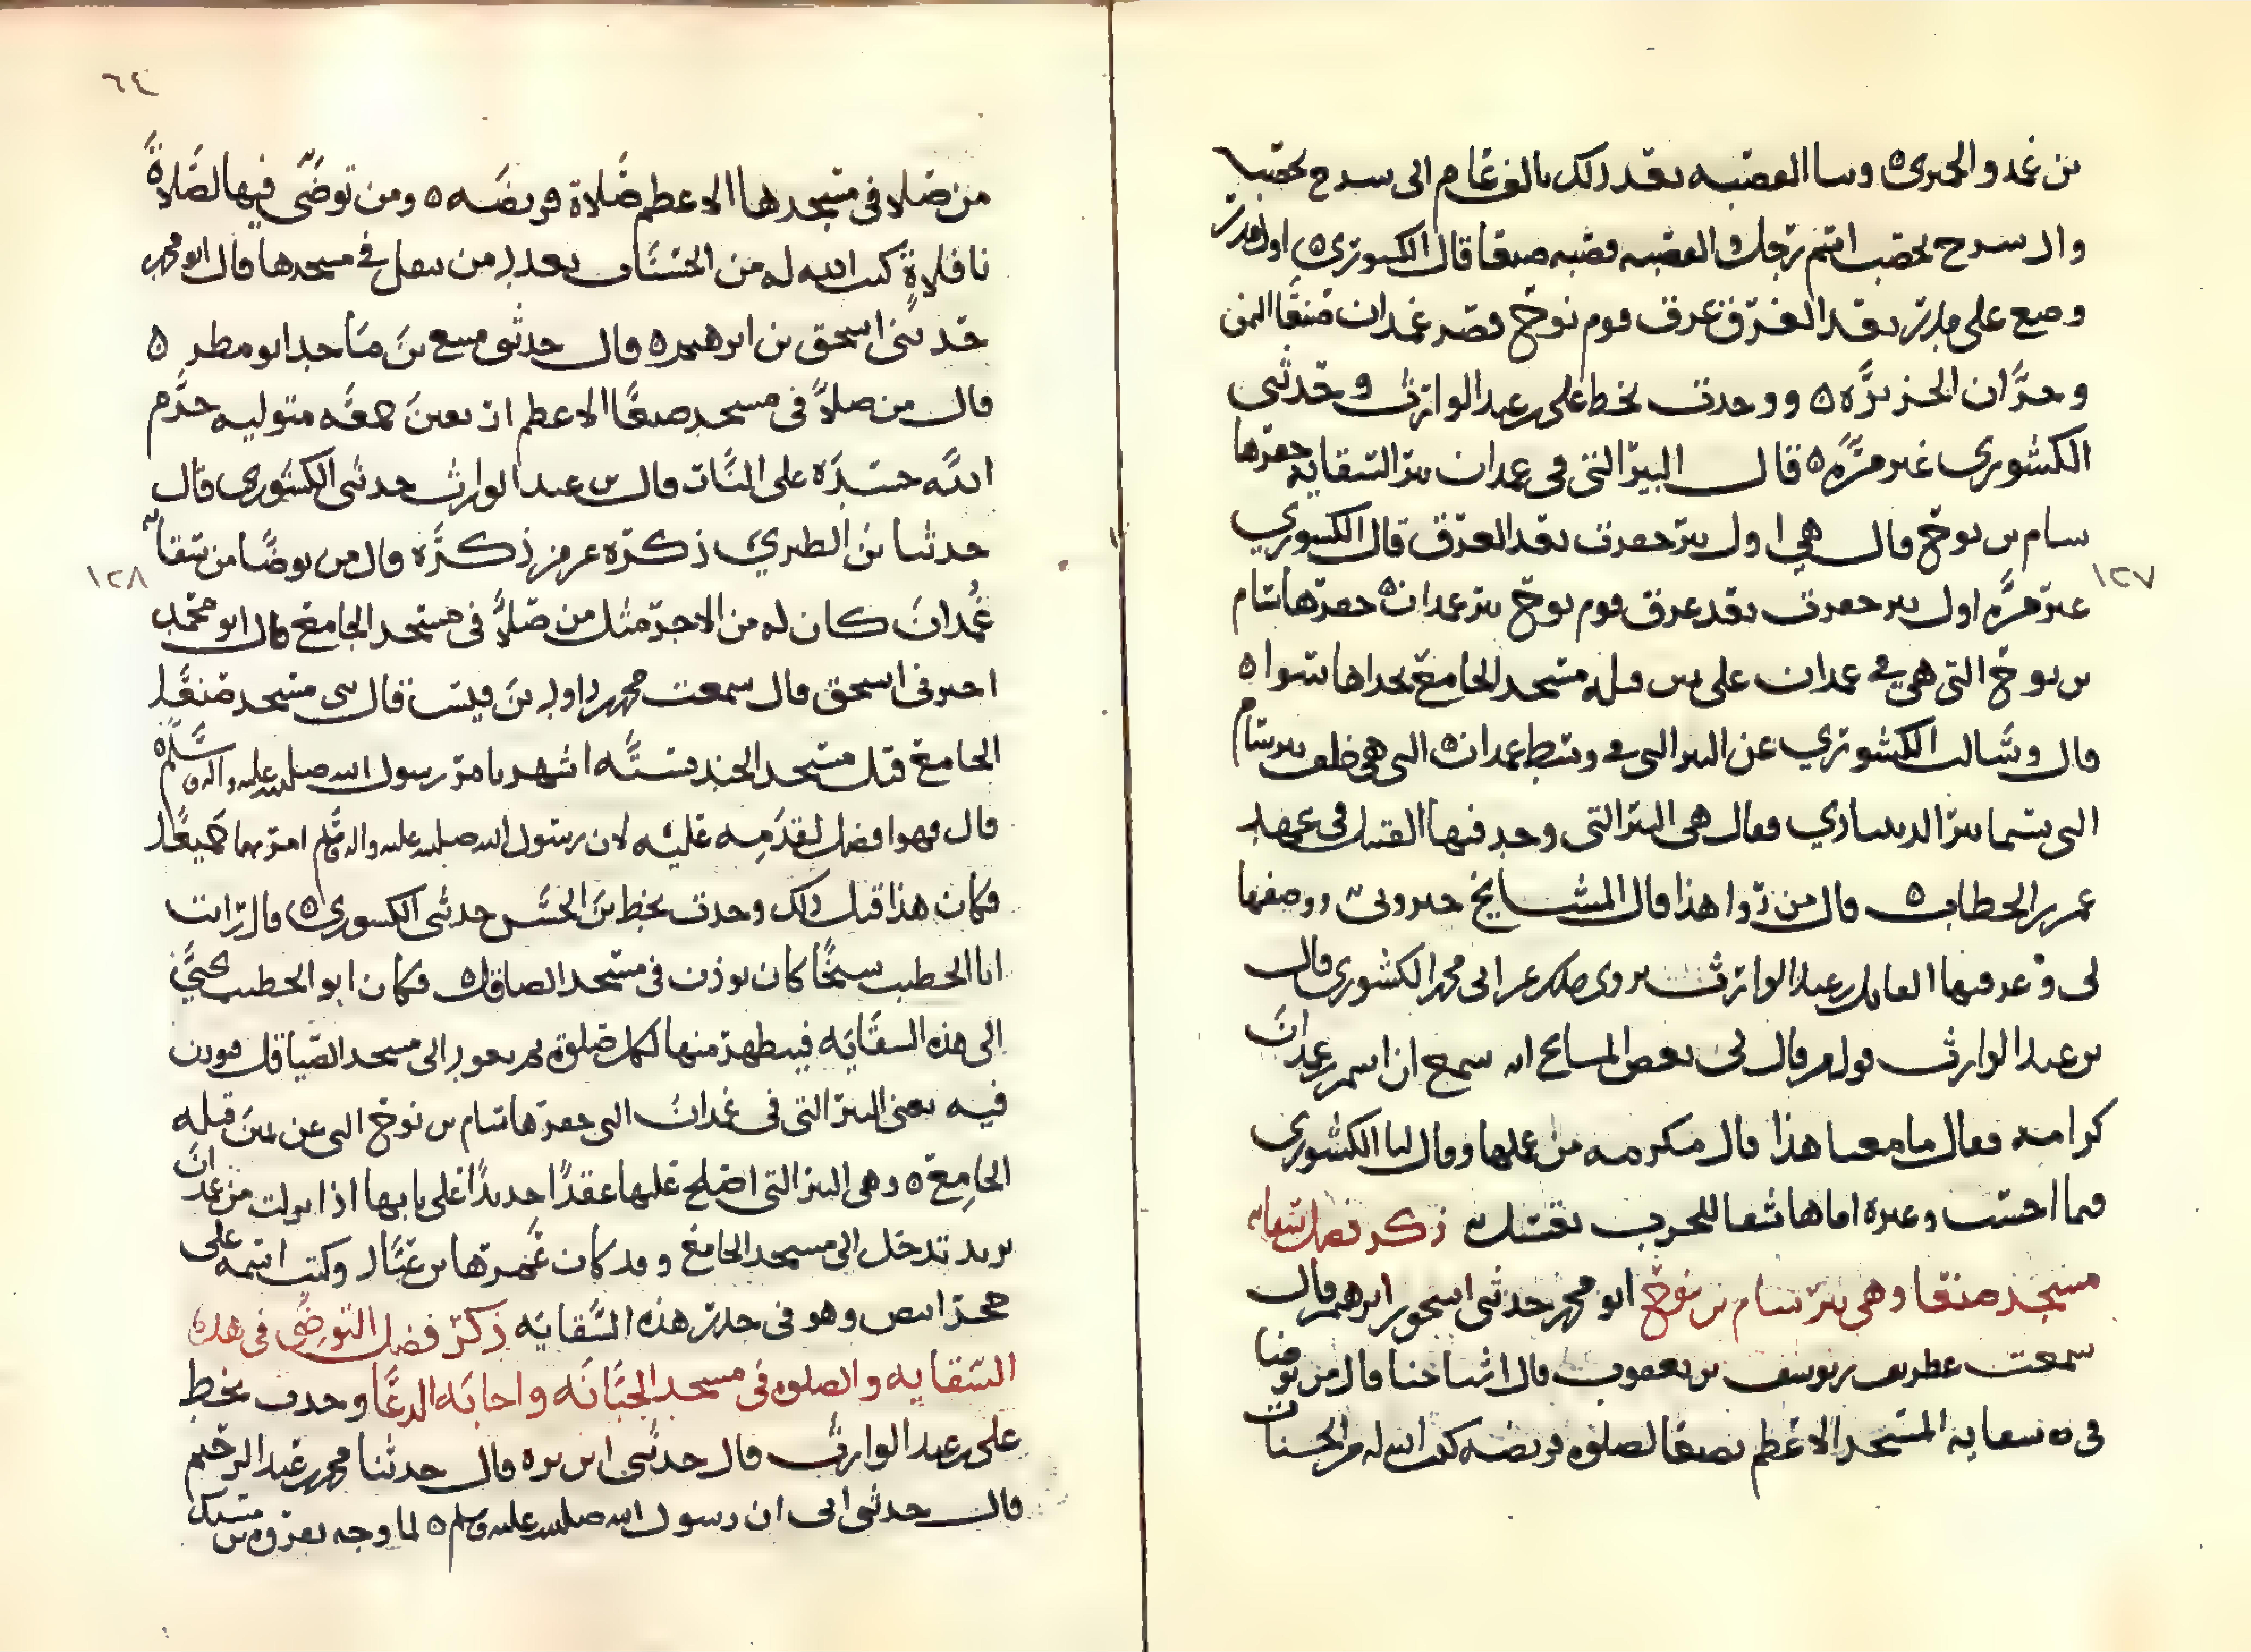 بن غمد والحىرى ٥ وىنا القصبه بعد ذلك بالف عام الى سرح يحصب
وال سرح يحصب اسم رجل والقصبه قصبه صنعا قال الكشورى ٥ اول جدر
وضع على جدر بعد الغرق غرق قوم نوح قصر غمدان صنعا اليمن
وحران الجزيره ٥ ووجدت بخط على بن عبد الوارث وحدثنى
الكشورى غير مره ٥ قال البير التى فى غمدان بير السقايه حفرها
سام بن نوح قال هى اول بير حفرت بعد الغرق قال الكشوري
غير مره اول بير حفرت بعد غرق قوم نوح بير غمدان ٥ حفرها سام
١٢٧
بن نوح التى هى فى غمدان على يمين قبله مسجد الجامع بحداها سوا ٥
قال وسالت الكشوري عن البير التى فى وسط غمدان ٥ التى هى خلف بير سام
التى تسما بير فقال هى البير التى وجد فيها القتيل فى عهد
عمر بن الخطاب ٥ قال من روا هذا قال المشايخ خبرونى ووصفها
لى بن عبد الوارث يروى ذلك عن ابى محمد الكشورى قال
بن عبد الوارث قولهم قال لى بعض المسايخ انه سمع ان اسم بير غمدان
كرامه فقال ما معنا هذا قال مكرمه من عملها وقال لنا الكشورى
فما احسب وغيره اماها للحرب بقتيل ذكر فضل سقايه
مسجد صنعا وهى بير سام بن نوح ابو محمد حدثنى اسحق بن ابرهيم قال
سمعت عطريف بن يوسف بن يعقوب قال اشياخنا قال من توضا
فى ٥ سقايه المسجد الاعظم بصنعا لصلوه فريضه كتب الله له من الحسنات
٦٤
من صلا فى مسجدها الاعظم صلاة فريضه ٥ ومن توضى فيها لصلاة
نافلة كتب الله له من الحسنات بعدد من تنفل فى مسجدها قال ابو محمد
حدثنى اسحق بن ابرهيم ٥ قال حدثنى مسيع بن ماجد ابو مطر ٥
قال من صلا فى مسجد صنعا الاعظم اربعين جمعه متواليه حرم
الله جسده على النار قال بن عبد الوارث حدثنى الكشورى قال
حدثنا بن الطبري ذكره عن من ذكره قال من توضا من سقايه
غمدان كان له من الاجر مثل من صلا فى مسجد الجامع قال ابو محمد
١٢٨
اخبرنى اسحق قال سمعت محمد بن داود بن قيس قال بنى مسجد صنعا
الجامع قبل مسجد الجند بسته اشهر بامر رسول الله صلى الله عليه واله وسلم
قال فهو افضل لقدمه عليه لان رسول الله صلى الله عليه واله وسلم امر بهما جميعا
فكان هذا قبل ذلك وجدت بخط بن الحسن حدثنى الكشورى ٥ قال رايت
ابا الخطيب شيخا كان يوذن فى مسجد الصياقل ٥ فكان ابو الخطيب يجي
الى هذه السقايه فيتطهر منها لكل صلوه ثم يعود الى مسجد الصياقل فيوذن
فيه يعنى البير التى فى غمدان التى حفرها سام بن نوح التى عن يمين قبله
الجامع ٥ وهى البير التى اصلح عليها عقدا جديدا على بابها اذا نزلت من غمدان
يريد تدخل الى مسجد الجامع وقد كان عمرها بن عباد وكتب اسمه على
حجر ابيض وهو فى جدر هذه السقايه ذكر فضل التوضى فى هذه
السقايه والصلوه فى مسجد الجبانه واجابه الدعا وجدت بخط
على بن عبد الوارث قال حدثنى ابن بره قال حدثنا محمد بن عبد الرحيم
قال حدثنى ابى ان رسول الله صلى الله عليه وسلم ٥ لما وجه بفروه بن مسيك